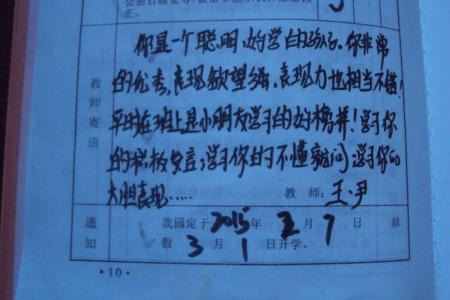 正。
你是一个聪明、好学的孩子。你非常
的优秀,表现欲望强,表现力也相当不错!
平时在班上是小朋友学习的好榜样!学习你
的积极发言;学习你的不懂就问;学习你的
大胆表现……
教师寄语
教师:王·尹
通知
我园定于2015年2月7日放
假3月1日开学。
·10·